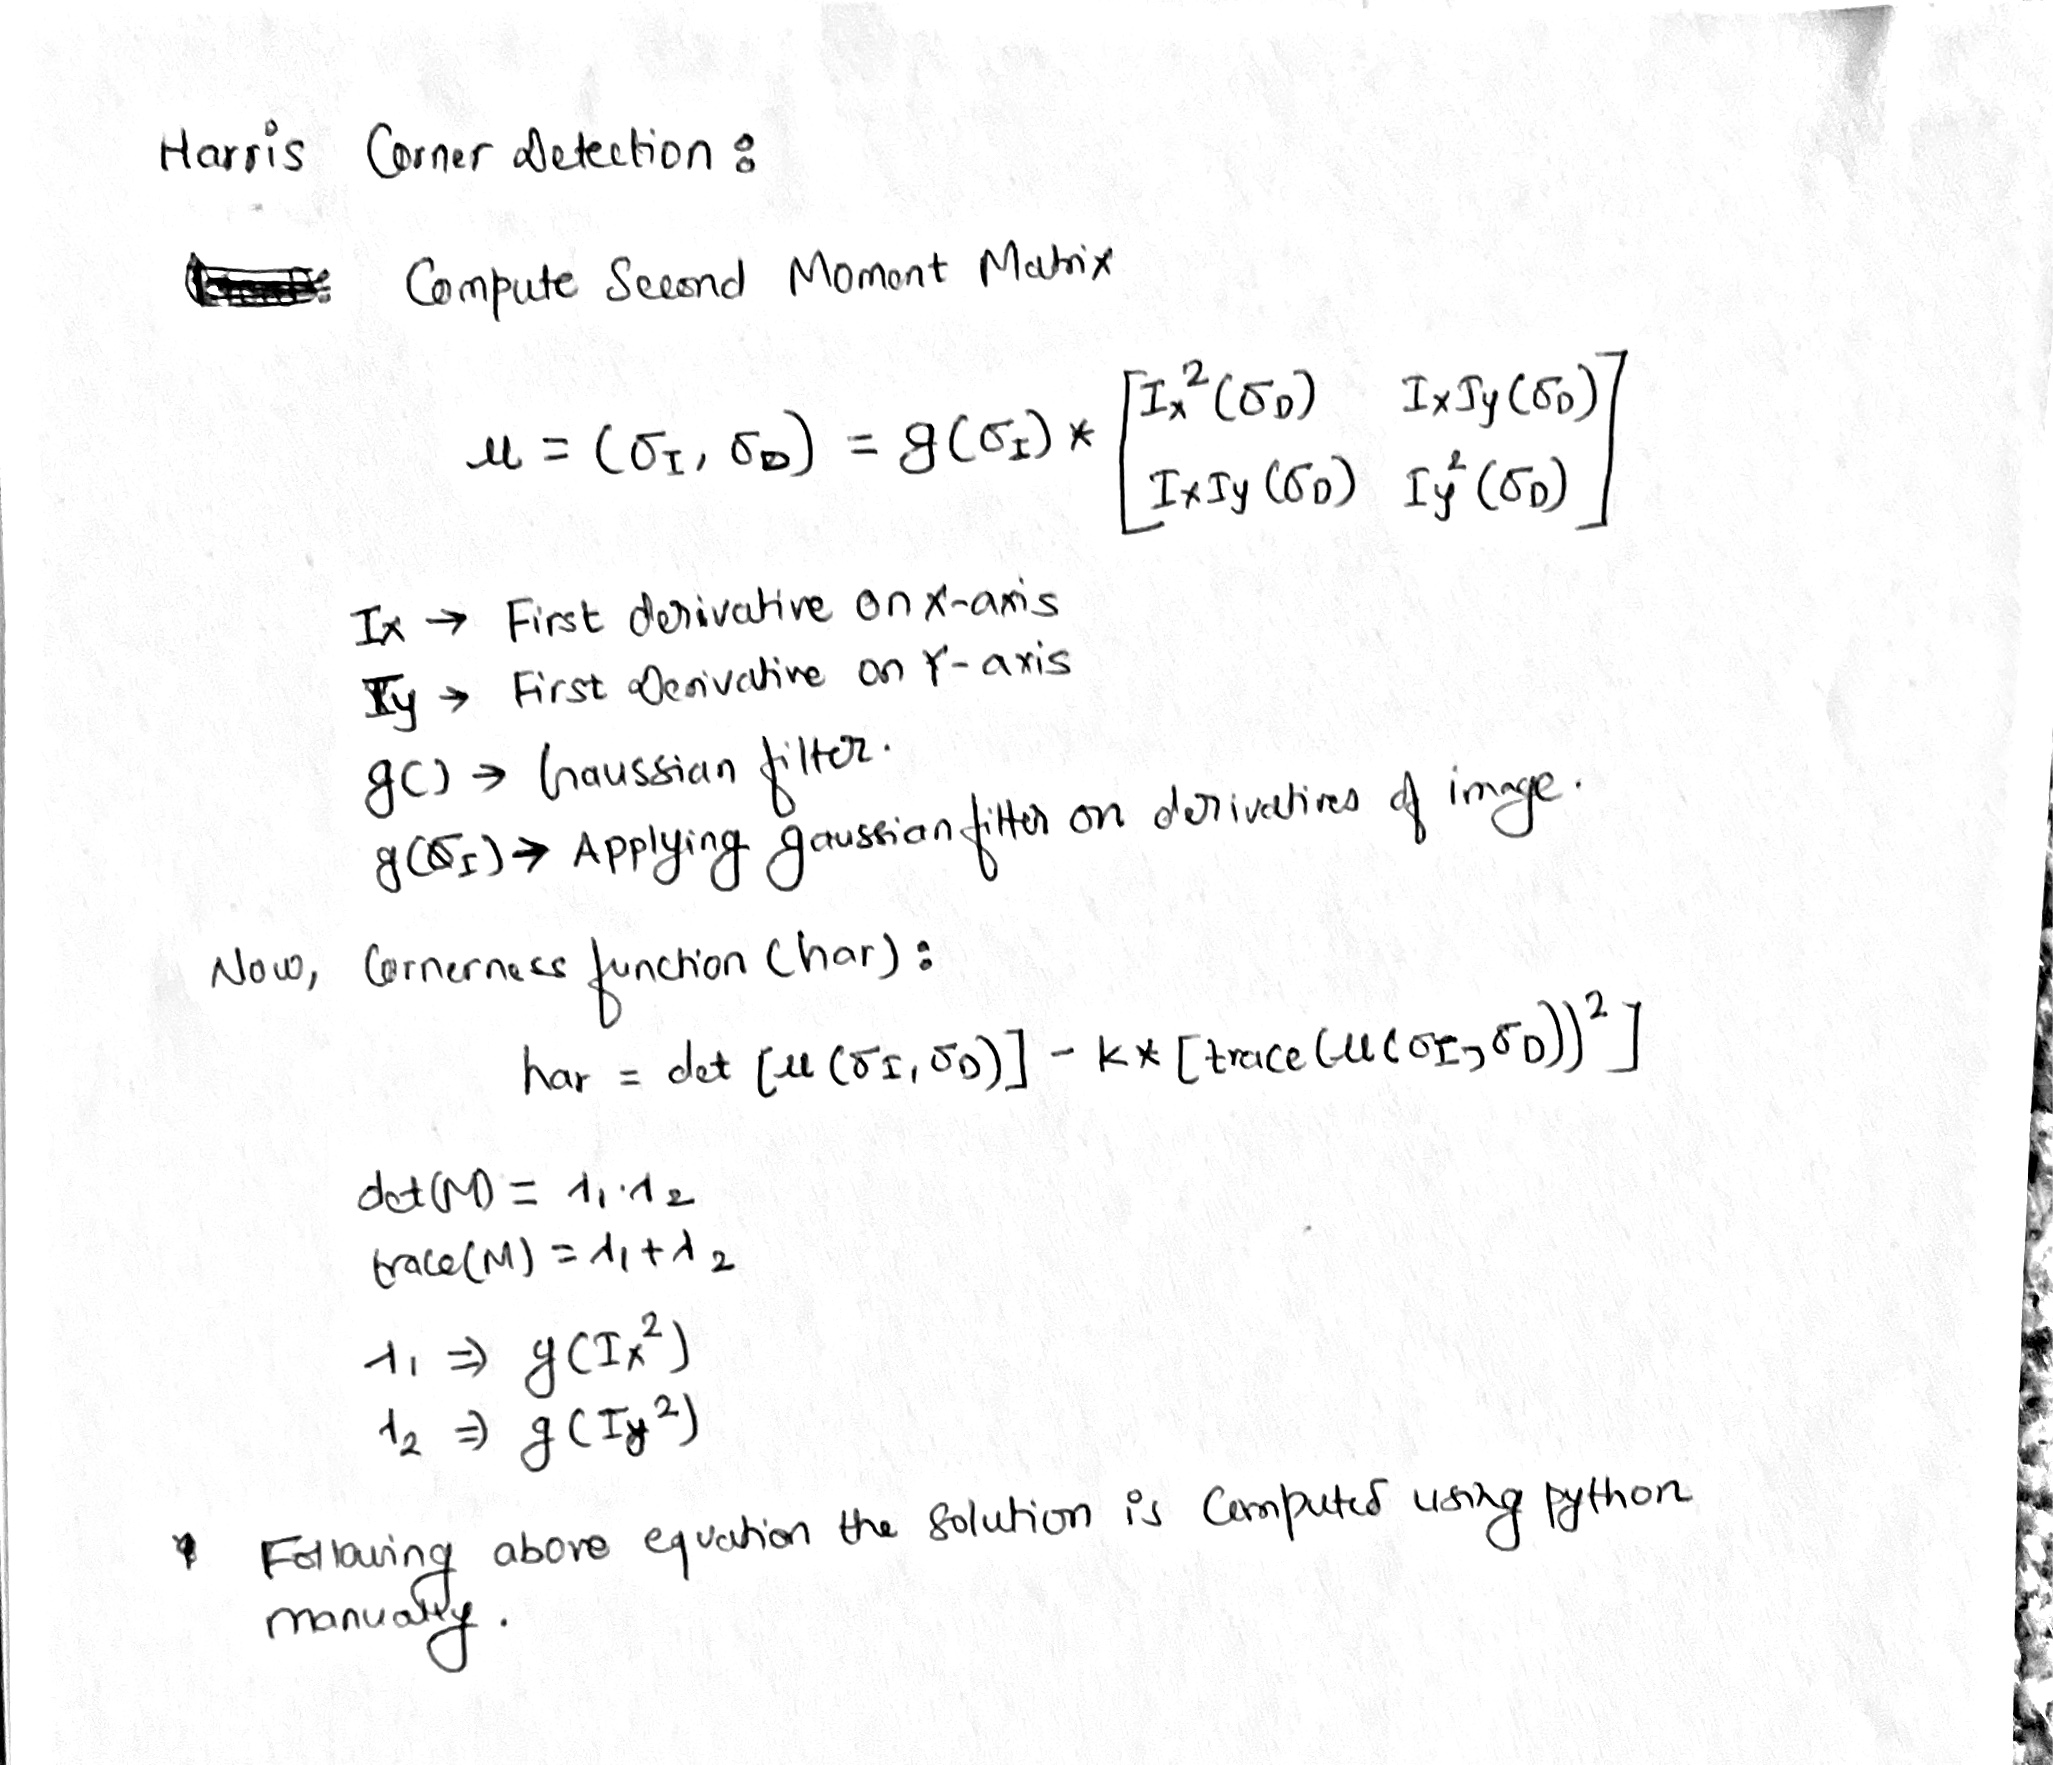 Harris Corner Detection :
Compute Second Moment Matrix
μ = (σI, σD) = g(σI) * [Ix²(σD) IxIy(σD)
IxIy(σD) Iy²(σD)]
Ix → First derivative on X-axis
Iy → First Derivative on Y-axis
g() → Gaussian filter.
g(σI) → Applying gaussian filter on derivatives of image.
Now, Cornerness function (har) :
har = det [μ(σI, σD)] - K * [trace(μ(σI, σD))²]
det(M) = λ1·λ2
trace(M) = λ1 + λ2
λ1 ⇒ g(Ix²)
λ2 ⇒ g(Iy²)
* Following above equation the solution is Computed using python
manually.